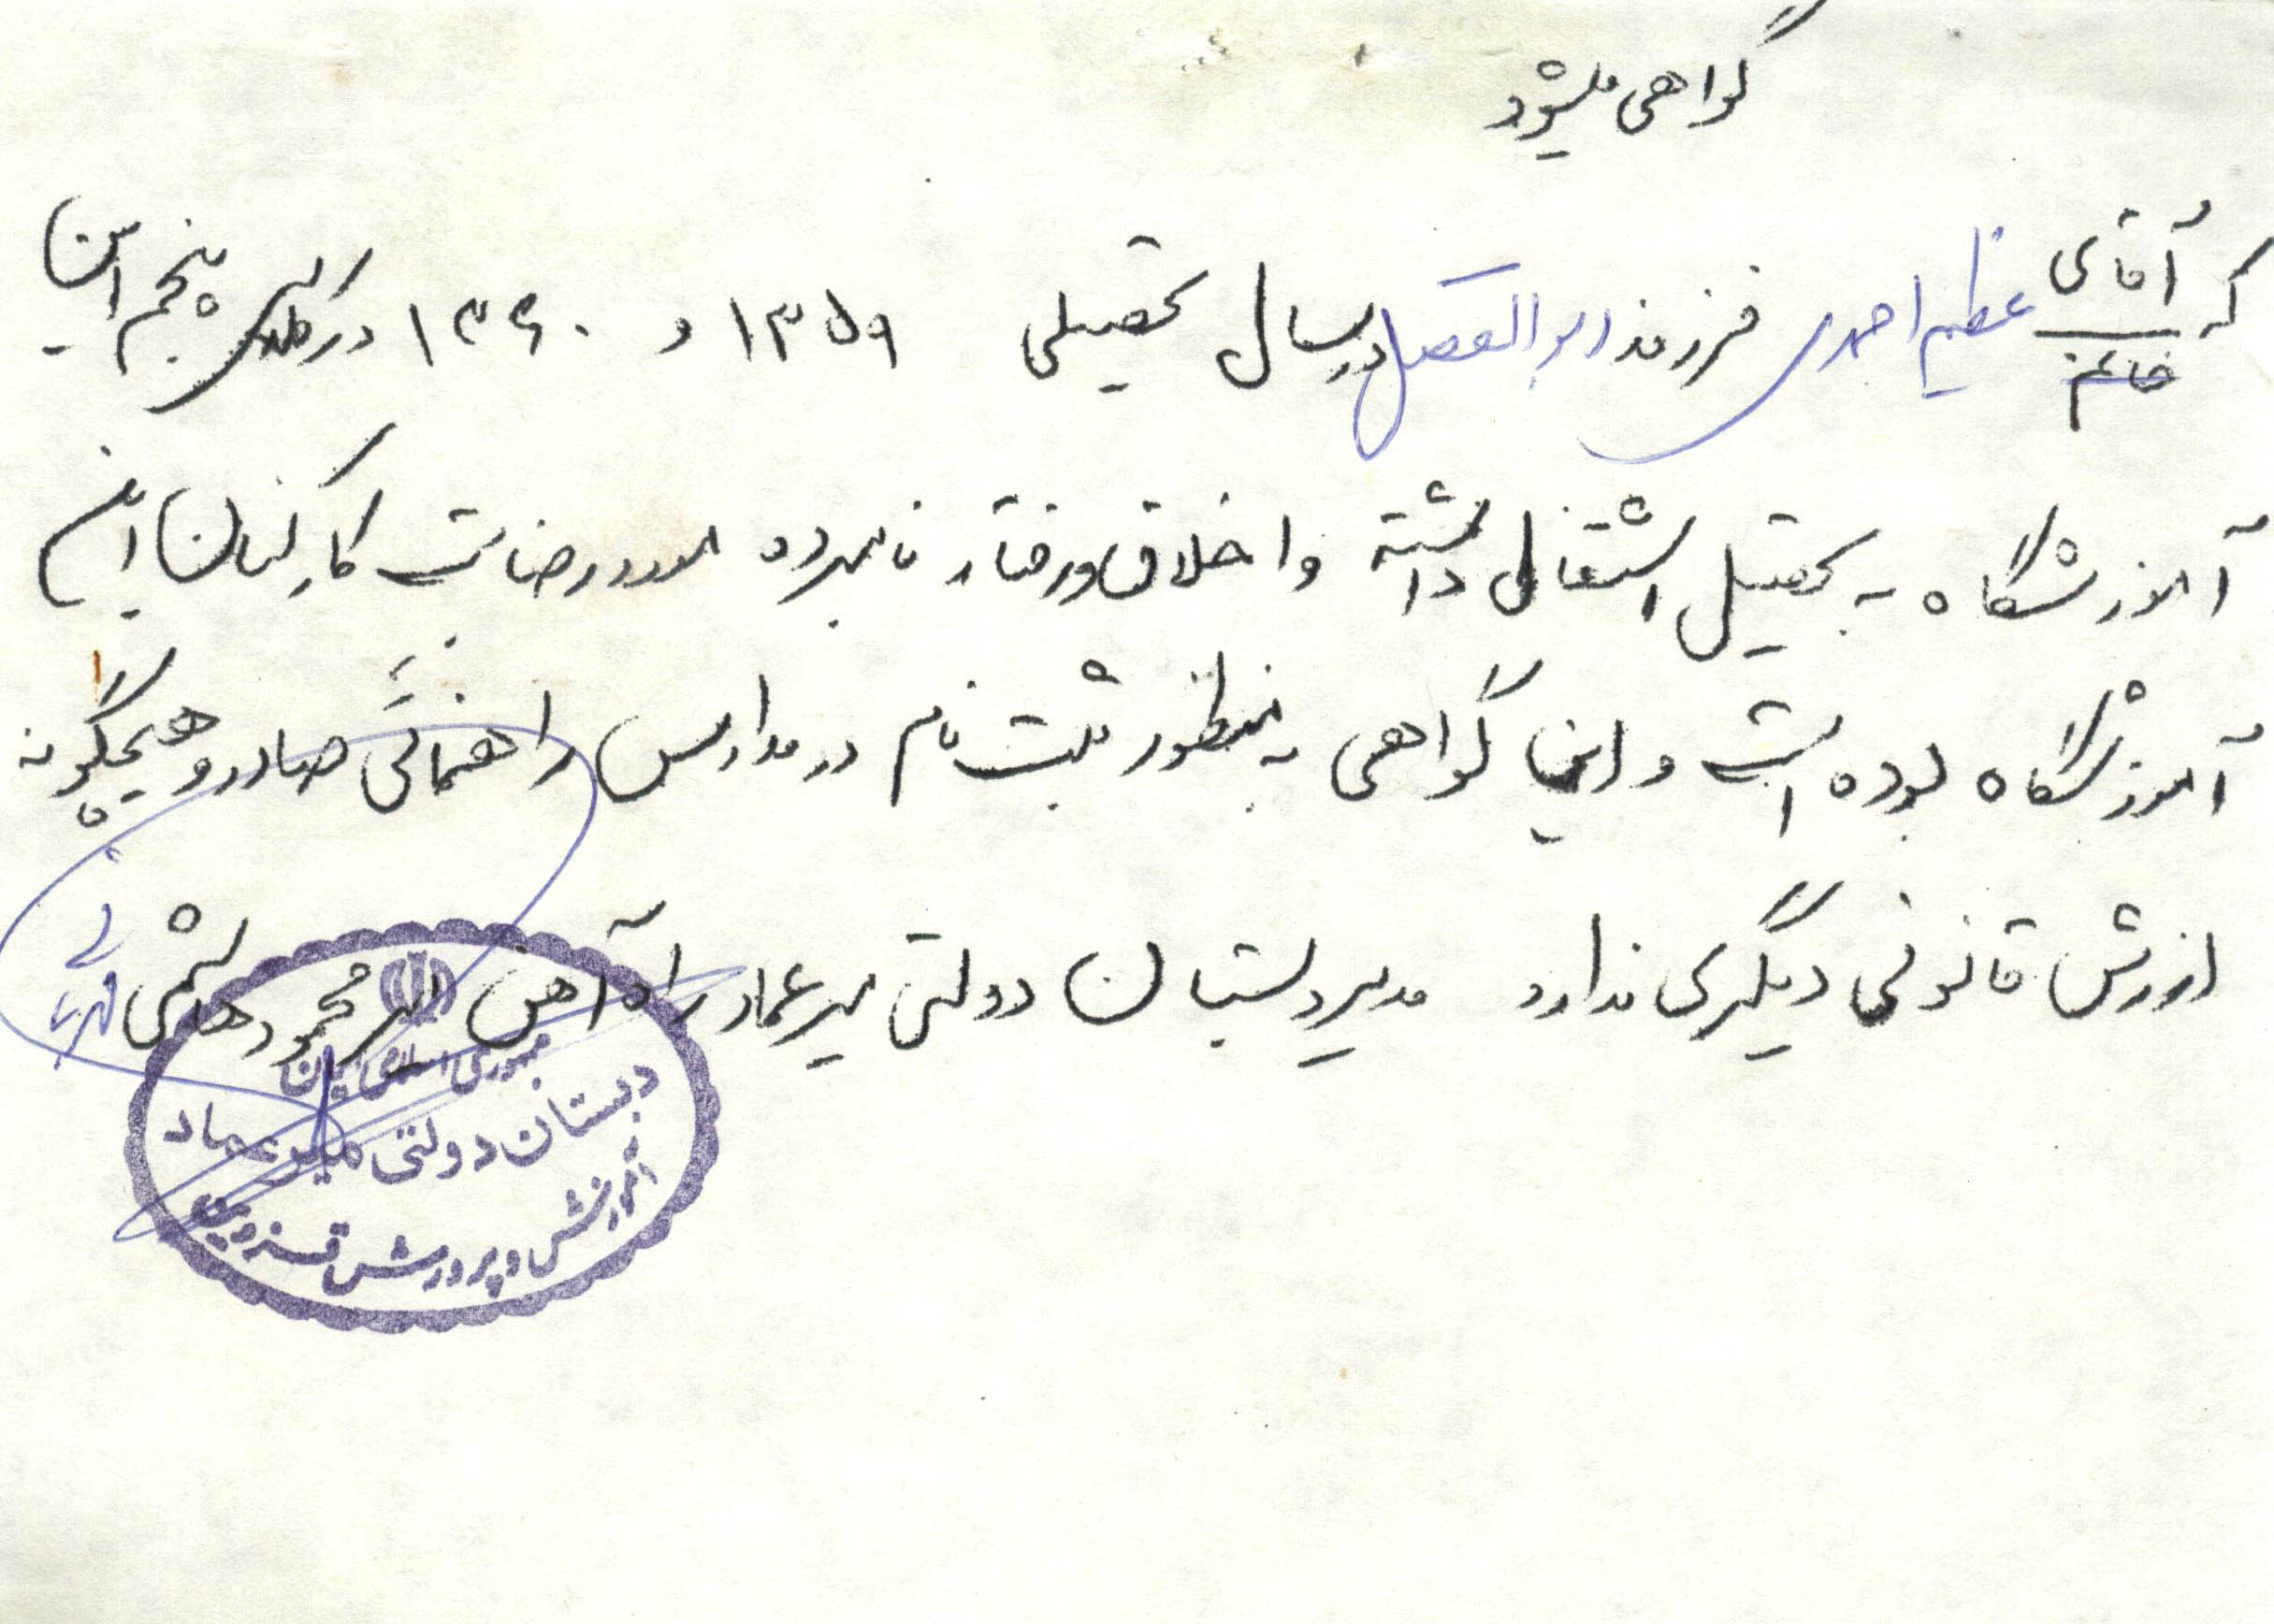 گواهی میشود
که آقای عظیم احمدی فرزند ابوالفضل در سال تحصیلی ۱۳۵۹ و ۱۳۶۰ در کلاس پنجم این
خانم
آموزشگاه به تحصیل اشتغال داشته و اخلاق و رفتار نامبرده مورد رضایت کارکنان این
آموزشگاه بوده است و این گواهی به منظور ثبت نام در مدارس راهنمائی صادر و هیچگونه
ارزش قانونی دیگری ندارد مدیر دبستان دولتی میرعماد راه آهن میر محمود هاشمی
جمهوری اسلامی ایران
دبستان دولتی میرعماد
آموزش و پرورش قزوین